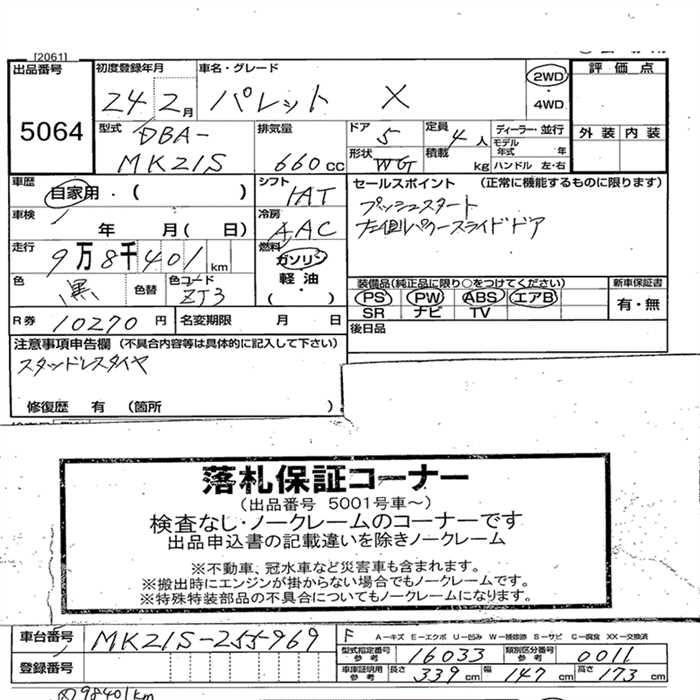 [2061]
出品番号 初度登録年月 車名・グレード 評価点
5064
24 2月 パレット X 2WD
・4WD
外装 内装
型式 DBA-
MK21S
排気量 660cc
ドア 5 定員 4人 ディーラー・並行
モデル年式 年
形状 WG 積載 kg ハンドル 左・右
車歴 自家用・( )
シフト IAT
セールスポイント (正常に機能するものに限ります)
プッシュスタート
左側パワースライドドア
車検 年 月( 日)
冷房 AAC
走行 9万8千401km
燃料 ガソリン
軽油
( ・ )
色 黒 色替 色コード ZJ3
装備品(純正品に限り○をつけてください) 新車保証書
PS PW ABS エアB 有・無
SR ナビ TV
R券 10270円 名変期限 月 日
後日品
注意事項申告欄(不具合内容等は具体的に記入して下さい)
スタッドレスタイヤ
修復歴 有 (箇所 )
落札保証コーナー
(出品番号 5001号車~)
検査なし・ノークレームのコーナーです
出品申込書の記載違いを除きノークレーム
※不動車、冠水車など災害車も含まれます。
※搬出時にエンジンが掛からない場合でもノークレームです。
※特殊特装部品の不具合についてもノークレームになります。
車台番号 MK21S-255969
F A-キズ E-エクボ U-凹み W-補修跡 S-サビ C-腐食 XX-交換済
型式指定番号 参考 16033 類別区分番号 参考 0011
登録番号
車庫証明用 参考 長さ 339cm 幅 147cm 高さ 173cm
98401km